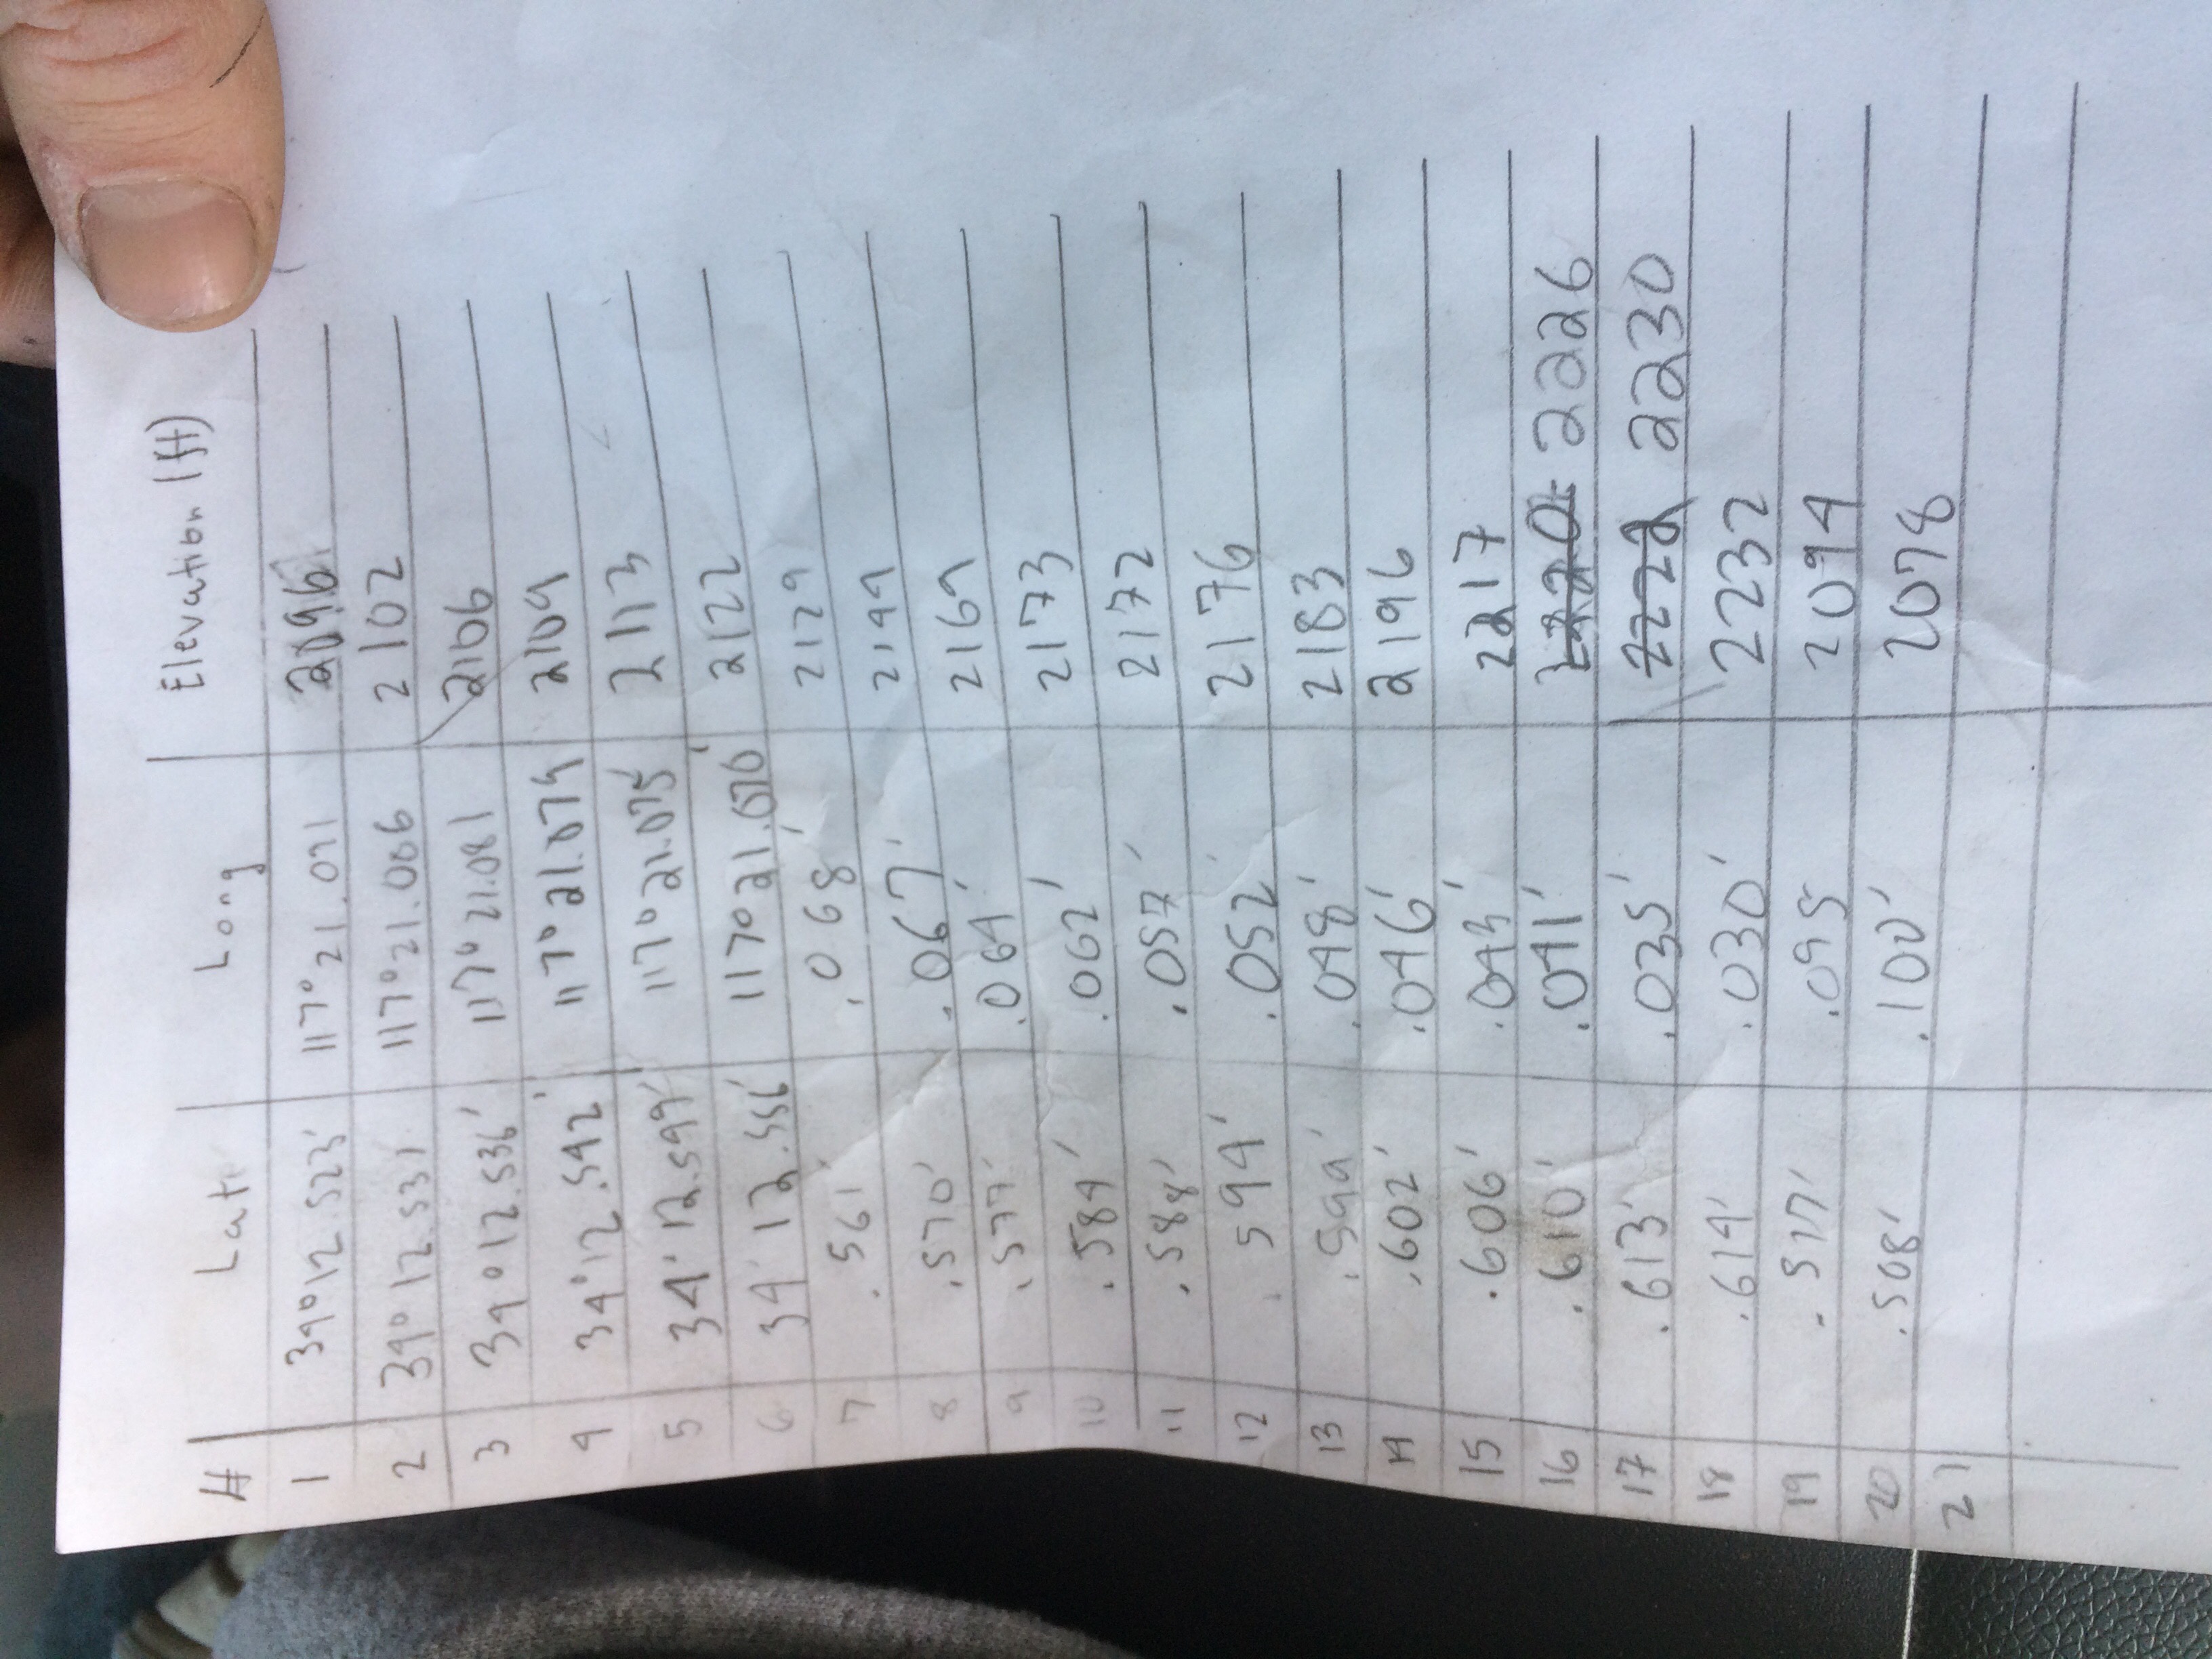 # Lat Long Elevation (ft)
1 34°12.523' 117°21.091 2096
2 34°12.531 117°21.086 2102
3 34°12.536' 117°21.081 2106
4 34°12.542' 117°21.079 2109
5 34°12.549' 117°21.075' 2113
6 34°12.556' 117°21.070' 2122
7 .561' .068' 2129
8 .570' .067' 2144
9 .577' .064' 2169
10 .584' .062' 2173
11 .588' .057' 2172
12 .594' .052' 2176
13 .599' .048' 2183
14 .602' .046' 2196
15 .606' .043' 2217
16 .610' .041' 2226
17 .613' .035' 2222 2230
18 .614' .030' 2232
19 .517' .095 2094
20 .508' .100' 2078
21